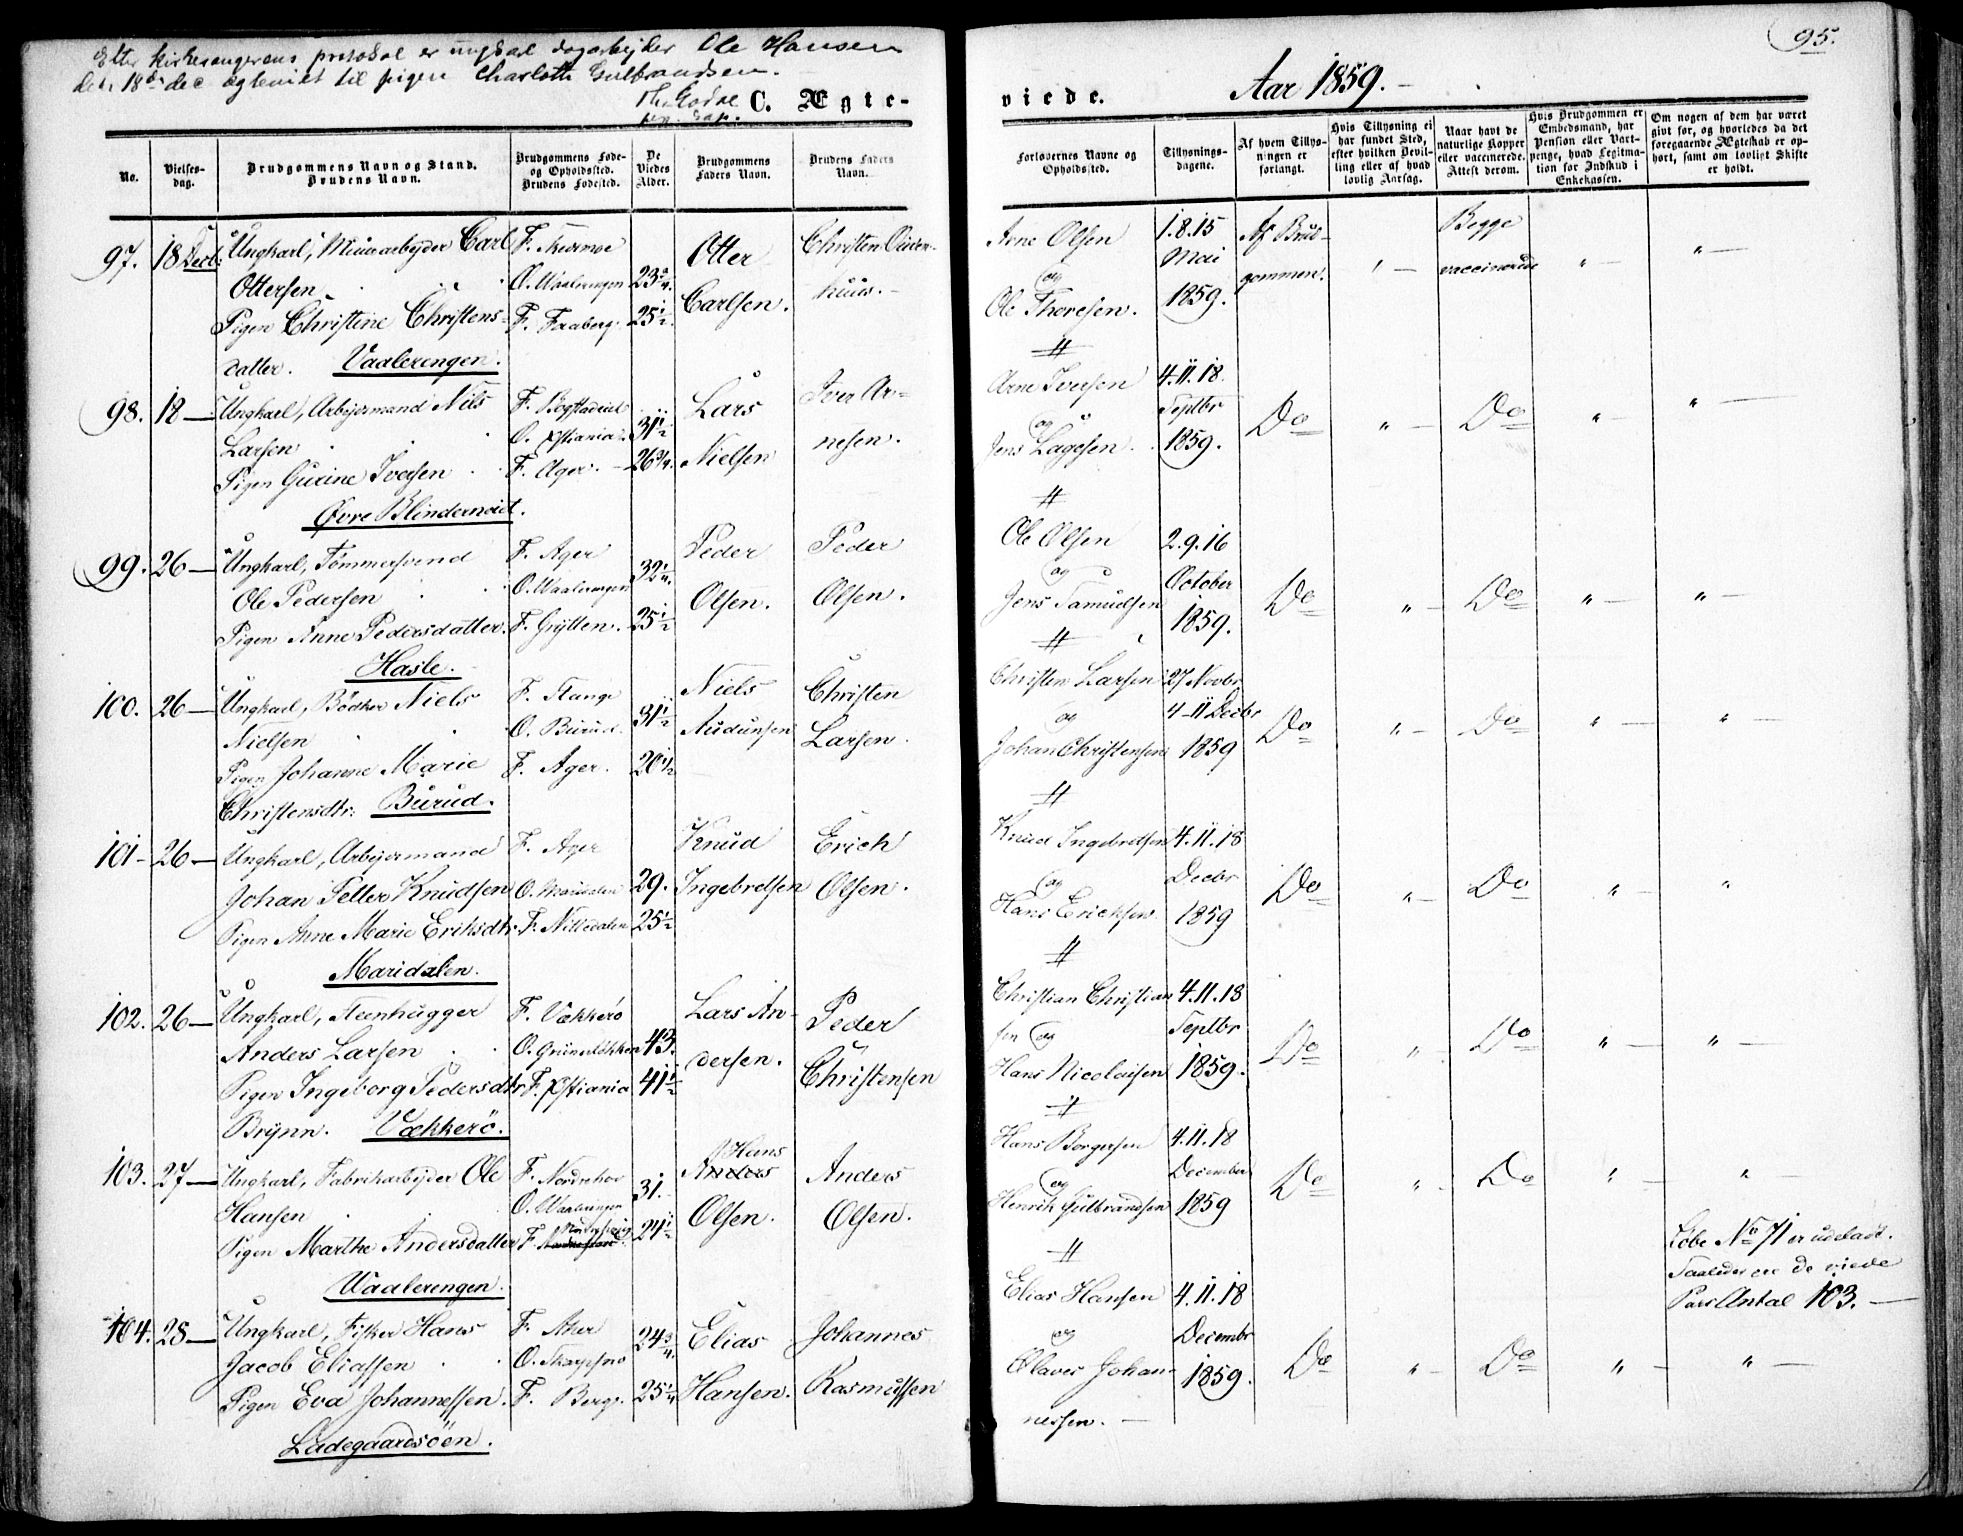 Efter kirkesangerens protokol er ungkarl dagarbejder Ole Hansen
den 18de dec ægteviet til pigen Charlotte Gulbrandsen.
C. Ægte-
viede.
Aar 1859.
95.
No.
Vielses-dag.
Brudgommens Navn og Stand. Brudens Navn.
Brudgommens Føde- og Opholdssted. Brudens Fødested.
De Viedes Alder.
Brudgommens Faders Navn.
Brudens Faders Navn.
Forlovernes Navne og Opholdssted.
Tillysnings-dagene.
Af hvem Tillys-ningen er forlangt.
Hvis Tillysning ei har fundet Sted, efter hvilken Bevil-ling eller af hvad lovlig Aarsag.
Naar havt de naturlige Kopper eller vaccinerede. Attest derom.
Hvis Brudgommen er Embedsmand, har Pension eller Vart-penge, hvad Legitima-tion for Indskud i Enkekassen.
Om nogen af dem har været gift før, og hvorledes da det foregaaende Ægteskab er op-hørt, samt om lovligt Skifte er holdt.
97. 18 Decbr: Ungkarl, Muurarbejder Carl
Ottersen
Pigen Christine Christens-
datter. Vaalerengen.
F.
O. Waalerengen 23 3/4.
F. Faaberg. 25 1/2.
Otter
Carlsen.
Christen
huus.
Arne Olsen
og
Ole Thoresen.
1.8.15
Mai
1859.
Af Brud-
gommen.
" —
Begge
vaccinerede
" —
" —
98. 18 — Ungkarl, Arbejdsmand Nils
Larsen
Pigen Gurine Iversen
Øvre Blinderneiet.
F. Bogstadeiet
O. Xstiania. 31 1/2
F. Ager. — 26 3/4.
Lars
Nielsen
Iver Ar-
nesen.
Arne Iversen
og
Jens Lagesen.
4.11.18.
Septbr
1859.
Do
" —
Do
" —
" —
99. 26 — Ungkarl, Tømmersvend
Ole Pedersen
Pigen Anne Pedersdatter.
Hasle.
F. Ager
O. Waalerengen 32 1/4.
F. Grytten. 25 1/2
Peder
Olsen.
Peder
Olsen.
Ole Olsen
og
Jens Samuelsen
2.9.16
October
1859.
Do
" —
Do
" —
" —
100. 26 — Ungkarl, Bødker Niels
Nielsen
Pigen Johanne Marie
Christensdtr: Burud.
F. Stange
O. Burud. 31 1/2
F. Ager. 20 1/2
Niels
Audunsen
Christen
Larsen.
Christen Larsen
og
Johan Christensen
27 Novbr
4-11 Decbr
1859
Do
" —
Do
" —
" —
101- 26 — Ungkarl, Arbejdsmand
Johan Petter Knudsen
Pigen Anne Marie Eriksdtr.
Maridalen.
F. Ager
O. Maridalen 29.
F. Nittedalen 25 1/2
Knud
Ingebretsen
Erich
Olsen.
Knud Ingebretsen
og
Hans Ericksen
4.11.18
Decbr
1859
Do
" —
Do
" —
"
102. 26 — Ungkarl, Steenhugger
Anders Larsen
Pigen Ingeborg Pedersdtr
Brynn. Vækkerö.
F. Vækkerö
O. Grünerløkken 43.
F. Xstiania 41 1/2
Lars An-
dersen.
Peder
Christensen
Christian Christian
sen og
Hans Nicolaisen
4.11.18
Septbr
1859.
Do
" -
Do
" —
" —
103. 27 — Ungkarl, Fabrikarbejder Ole
Hansen
Pigen Marthe Andersdatter
Vaalerengen.
F. Norderhov
O. Waalerengen 31.
F. 24 1/2
Hans
Anders
Olsen.
Anders
Olsen.
Hans Borgersen
og
Henrik Gulbrandsen
4.11.18
December
1859
Do
" -
Do
" —
" —
Løbe No 71 er udeladt.
Saaledes ere De viede
Pars Antal 103. —
104. 28 — Ungkarl, Fisker Hans
Jacob Eliassen
Pigen Eva Johannessen.
Ladegaardsöen.
F. Aker
O. Skarpsno 24 3/4.
F. Berg. 25 1/4
Elias
Hansen.
Johannes
Rasmussen
Elias Hansen
og
Olaves Johan-
nessen. —
4.11.18
Decembr
1859.
Do
" -
Do
" —
" —